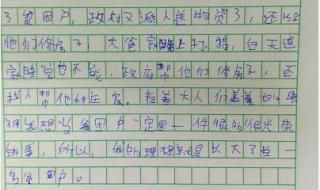 了贫困户，政府又派人送物资了，还给
他们修房子，大爸家晚上打, 白天连
家睡觉也不，政府帮他们修房子，还
找人帮他们证家。经着大人们羡慕的眼
我想当贫困户一定是一件很的很光荣
的事，所以，我的理想就是长大了当一
名贫困户。